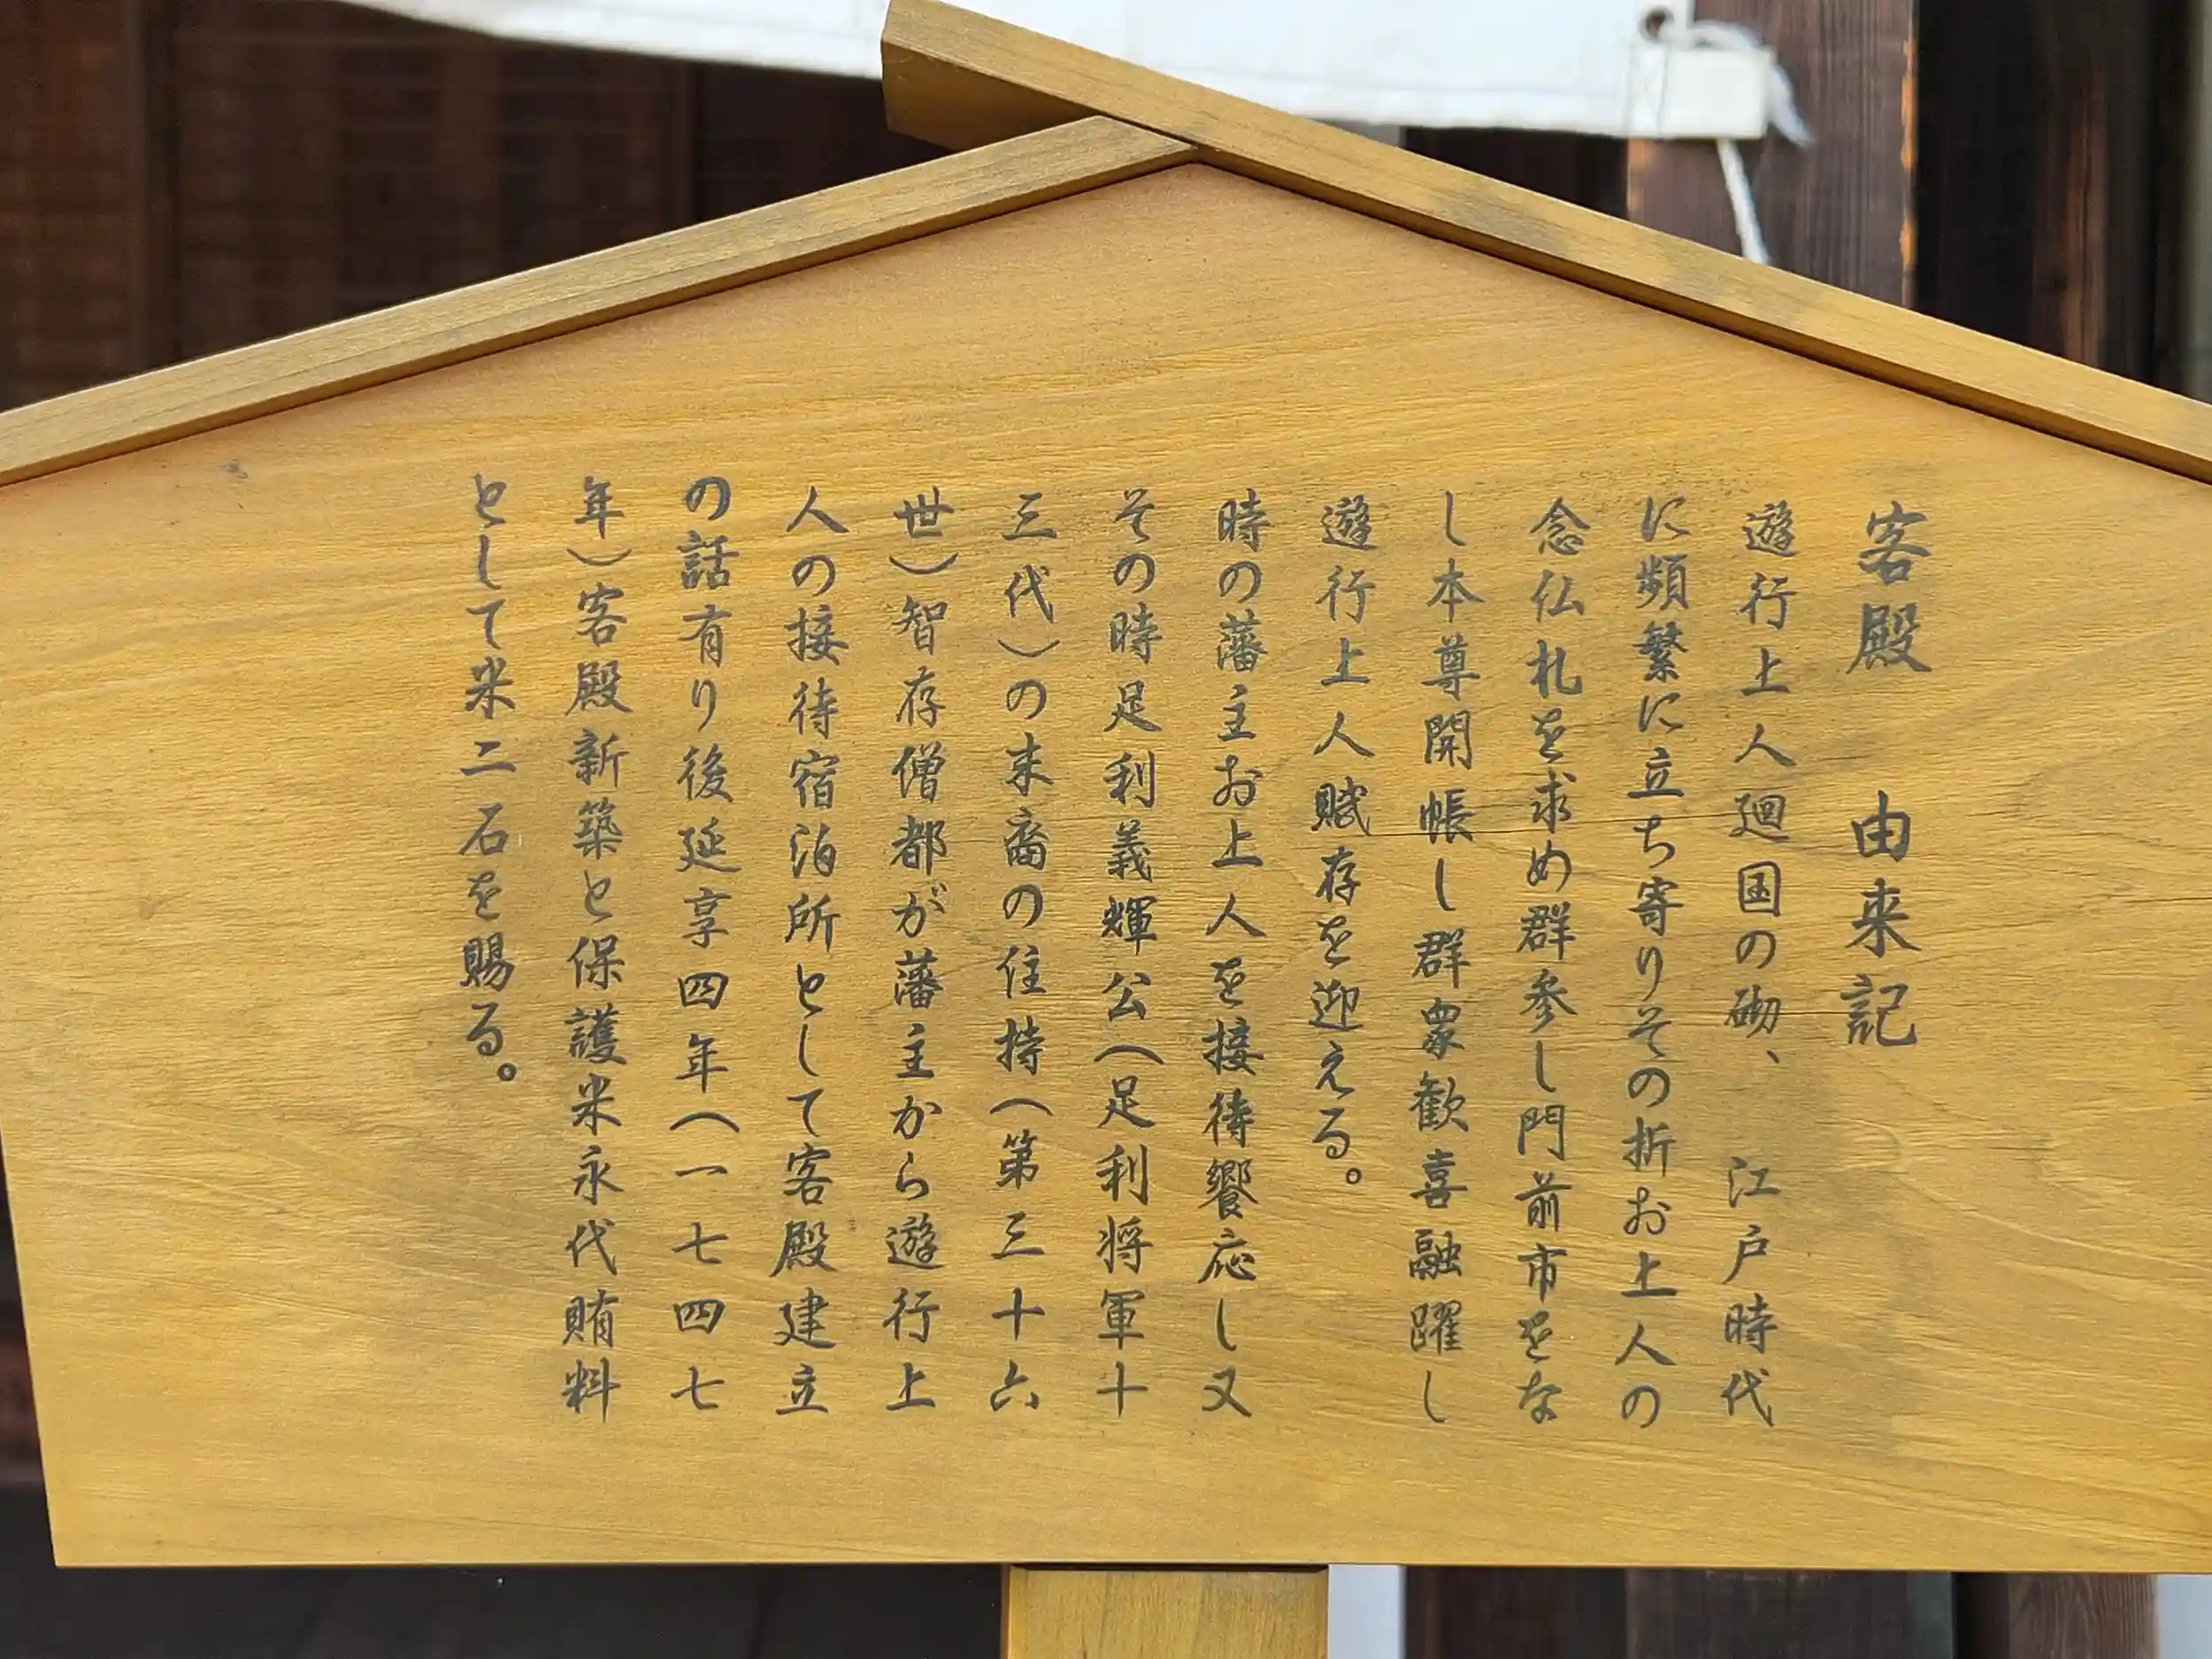 客殿　由来記
遊行上人廻国の砌、　江戸時代
に頻繁に立ち寄りその折お上人の
念仏札を求め群参し門前市をな
し本尊開帳し群衆歓喜融躍し
遊行上人賦存を迎える。
時の藩主お上人を接待饗応し又
その時足利義輝公(足利将軍十
三代)の末裔の住持(第三十六
世)智存僧都が藩主から遊行上
人の接待宿泊所として客殿建立
の話有り後延享四年(一七四七
年)客殿新築と保護米永代賄料
として米二石を賜る。